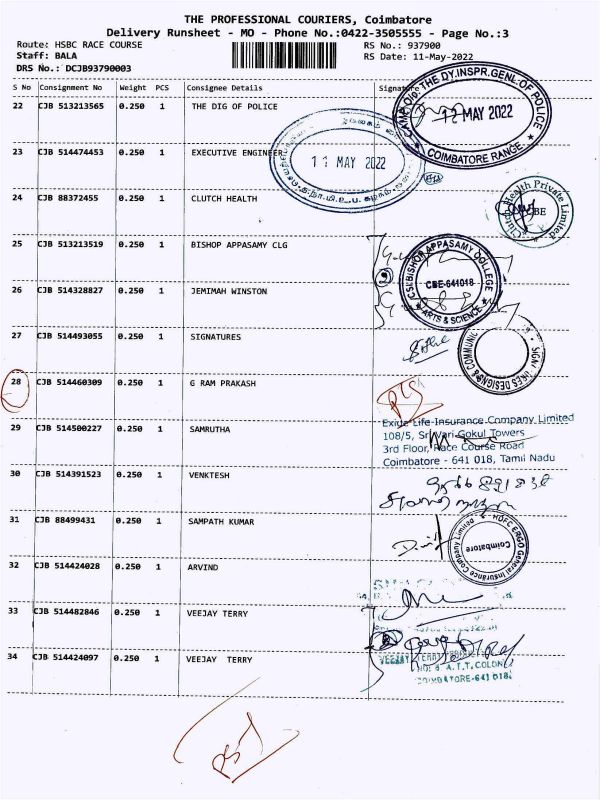 THE PROFESSIONAL COURIERS, Coimbatore
Delivery Runsheet - MO - Phone No.:0422-3505555 - Page No.:3
Route: HSBC RACE COURSE
RS No.: 937900
Staff: BALA
RS Date: 11-May-2022
DRS No.: DCJB93790003
S No Consignment No Weight PCS Consignee Details Signature
22 CJB 513213565 0.250 1 THE DIG OF POLICE
THE DY.INSPR.GENL.OF POLICE
12 MAY 2022
COIMBATORE RANGE.
23 CJB 514474453 0.250 1 EXECUTIVE ENGINEER
11 MAY 2022
24 CJB 88372455 0.250 1 CLUTCH HEALTH
Clutch Health Private Limited
CBE
25 CJB 513213519 0.250 1 BISHOP APPASAMY CLG
CSI BISHOP APPASAMY COLLEGE
CBE-641018
ARTS & SCIENCE
26 CJB 514328827 0.250 1 JEMIMAH WINSTON
27 CJB 514493055 0.250 1 SIGNATURES
28 CJB 514460309 0.250 1 G RAM PRAKASH
29 CJB 514500227 0.250 1 SAMRUTHA
Exide Life Insurance Company Limited
108/5, Sri Vari Gokul Towers
3rd Floor, Race Course Road
Coimbatore - 641 018, Tamil Nadu
30 CJB 514391523 0.250 1 VENKTESH
31 CJB 88499431 0.250 1 SAMPATH KUMAR
HDFC ERGO General Insurance Company Limited
Coimbatore
32 CJB 514424028 0.250 1 ARVIND
33 CJB 514482846 0.250 1 VEEJAY TERRY
34 CJB 514424097 0.250 1 VEEJAY TERRY
A.T.T. COLONY
COIMBATORE-641 018.